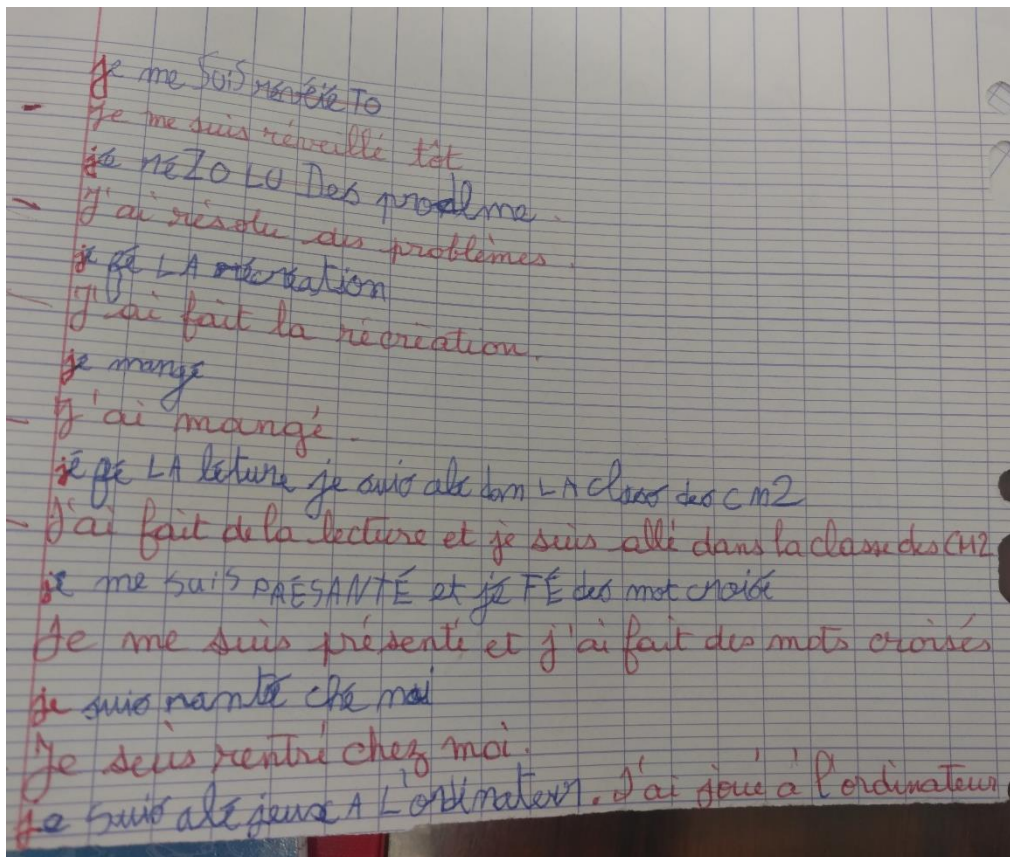 je me suis révéié TO
Je me suis réveillé tôt
jé réZO LU Des prodlme.
J'ai résolu des problèmes.
jé fé LA récréation
J'ai fait la récréation.
je mangé
J'ai mangé.
jé fé LA léture je suis alé dan LA class des CM2
J'ai fait de la lecture et je suis allé dans la classe des CM2
je me suis PRÉSANTÉ et jé FÉ des mot croisé
Je me suis présenté et j'ai fait des mots croisés
je suis rantré ché moi
Je suis rentré chez moi.
je suis alé jeux A L'ordinateur. J'ai joué à l'ordinateur